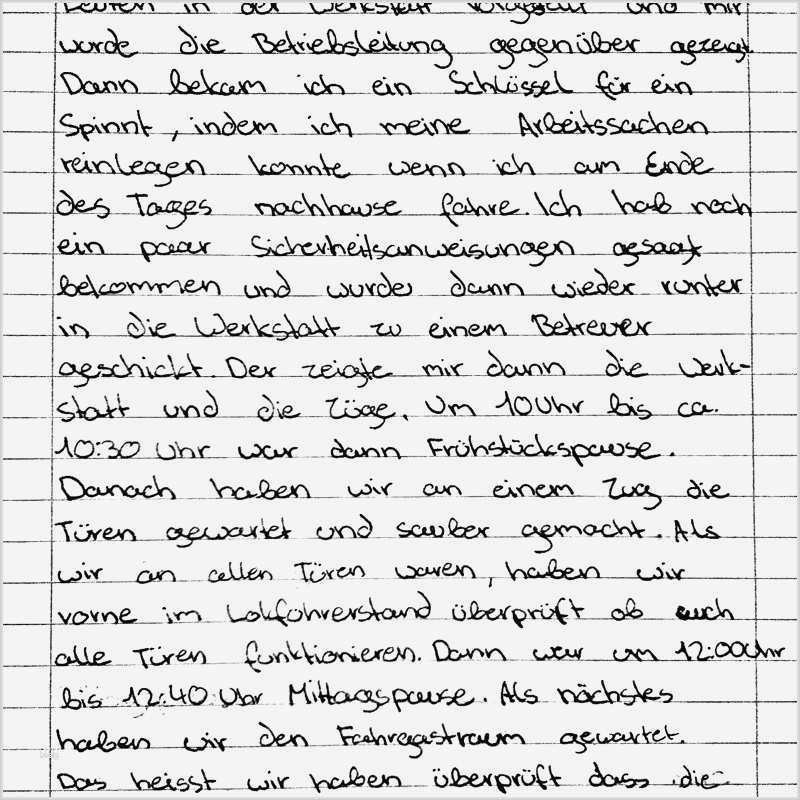 Leuten in der Werkstatt vorgestellt und mir
wurde die Betriebsleitung gegenüber gezeigt.
Dann bekam ich ein Schlüssel für ein
Spinnt, indem ich meine Arbeitssachen
reinlegen konnte wenn ich am Ende
des Tages nachhause fahre. Ich hab noch
ein paar Sicherheitsanweisungen gesagt
bekommen und wurde dann wieder runter
in die Werkstatt zu einem Betreuer
geschickt. Der zeigte mir dann die Werk-
statt und die Züge. Um 10Uhr bis ca.
10:30 Uhr war dann Frühstückspause.
Danach haben wir an einem Zug die
Türen gewartet und sauber gemacht. Als
wir an allen Türen waren, haben wir
vorne im Lokführerstand überprüft ob auch
alle Türen funktionieren. Dann war um 12:00Uhr
bis 12:40 Uhr Mittagspause. Als nächstes
haben wir den Fahregastraum gewartet.
Das heisst wir haben überprüft dass die